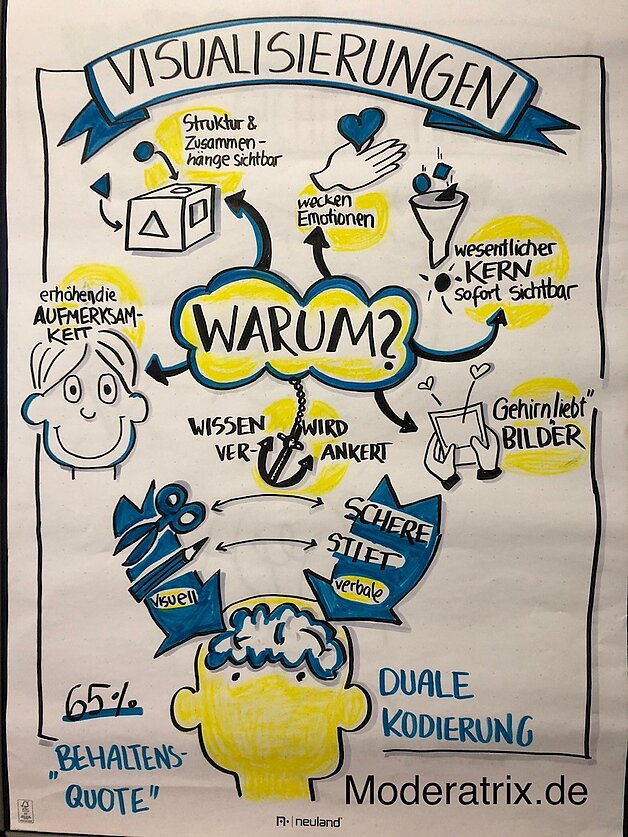 VISUALISIERUNGEN
Struktur &
Zusammen-
hänge sichtbar
wecken
Emotionen
wesentlicher
KERN
sofort sichtbar
erhöhen die
AUFMERKSAM-
KEIT
WARUM?
Gehirn „liebt"
BILDER
WISSEN WIRD
VER- ANKERT
SCHERE
STIFT
visuell
verbale
65%
„BEHALTENS-
QUOTE"
DUALE
KODIERUNG
Moderatrix.de
neuland